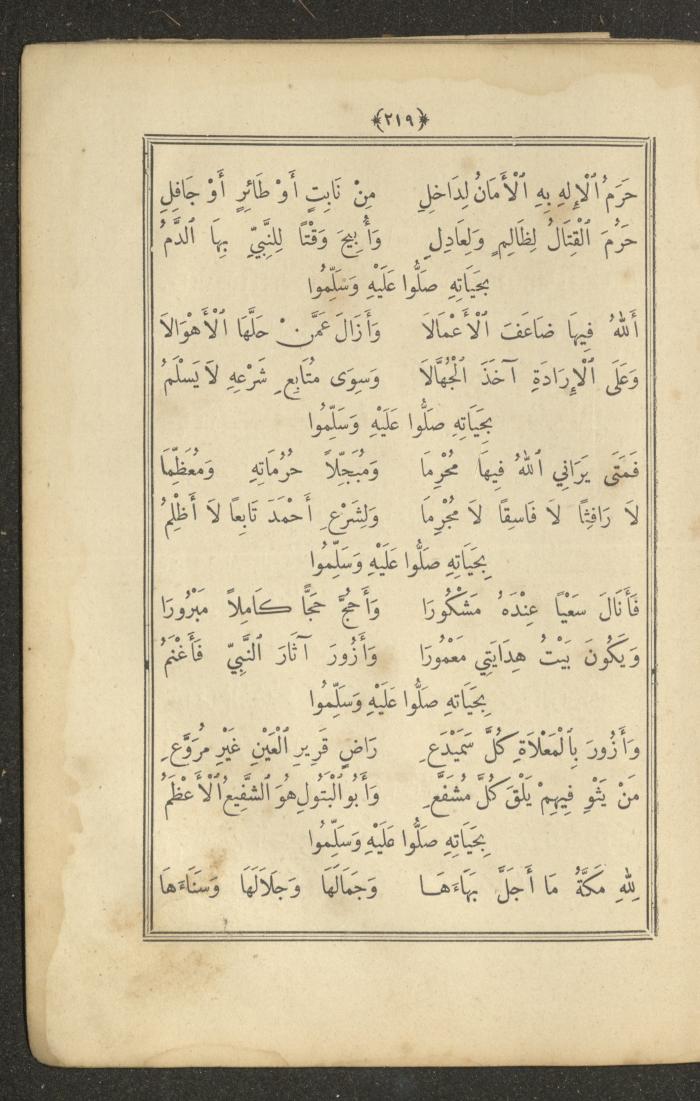 ﴿٢١٩﴾
حَرَمُ ٱلْإِلهِ بِهِ ٱلْأَمَانُ لِدَاخِلِ مِنْ نَابِتٍ أَوْ طَائِرٍ أَوْ جَافِلِ
حَرُمَ ٱلْقِتَالُ لِظَالِمٍ وَلِعَادِلٍ وَأُبِيحَ وَقْتًا لِلنَّبِيِّ بِهَا ٱلدَّمُ
بِحَيَاتِهِ صَلُّوا عَلَيْهِ وَسَلِّمُوا
أَللهُ فِيهَا ضَاعَفَ ٱلْأَعْمَالَا وَأَزَالَ عَمَّنْ حَلَّهَا ٱلْأَهْوَالَا
وَعَلَى ٱلْإِرَادَةِ آخَذَ ٱلْجُهَّالَا وَسِوَى مُتَابِعِ شَرْعِهِ لَا يَسْلَمُ
بِحَيَاتِهِ صَلُّوا عَلَيْهِ وَسَلِّمُوا
فَمَتَى يَرَانِي ٱللهُ فِيهَا مُحْرِمَا وَمُبَجِّلاً حُرُمَاتِهِ وَمُعَظِّمَا
لَا رَافِثًا لَا فَاسِقًا لَا مُجْرِمَا وَلِشَرْعِ أَحْمَدَ تَابِعًا لَا أَظْلِمُ
بِحَيَاتِهِ صَلُّوا عَلَيْهِ وَسَلِّمُوا
فَأَنَالَ سَعْياً عِنْدَهُ مَشْكُورَا وَأَحُجَّ حَجًّا كَامِلاً مَبْرُورَا
وَيَكُونَ بَيْتُ هِدَايَتِي مَعْمُورَا وَأَزُورَ آثَارَ ٱلنَّبِيِّ فَأَغْنَمُ
بِحَيَاتِهِ صَلُّوا عَلَيْهِ وَسَلِّمُوا
وَأَزُورَ بِٱلْمَعْلَاةِ كُلَّ سَمَيْدَعِ رَاضٍ قَرِيرِ ٱلْعَيْنِ غَيْرِ مُرَوَّعِ
مَنْ يَثْوِ فِيهِمْ يَلْقَ كُلَّ مُشَفَّعِ وَأَبُو ٱلْبَتُولِ هُوَ ٱلشَّفِيعُ ٱلْأَعْظَمُ
بِحَيَاتِهِ صَلُّوا عَلَيْهِ وَسَلِّمُوا
لِلهِ مَكَّةُ مَا أَجَلَّ بَهَاءَهَا وَجَمَالَهَا وَجَلَالَهَا وَسَنَاءَهَا